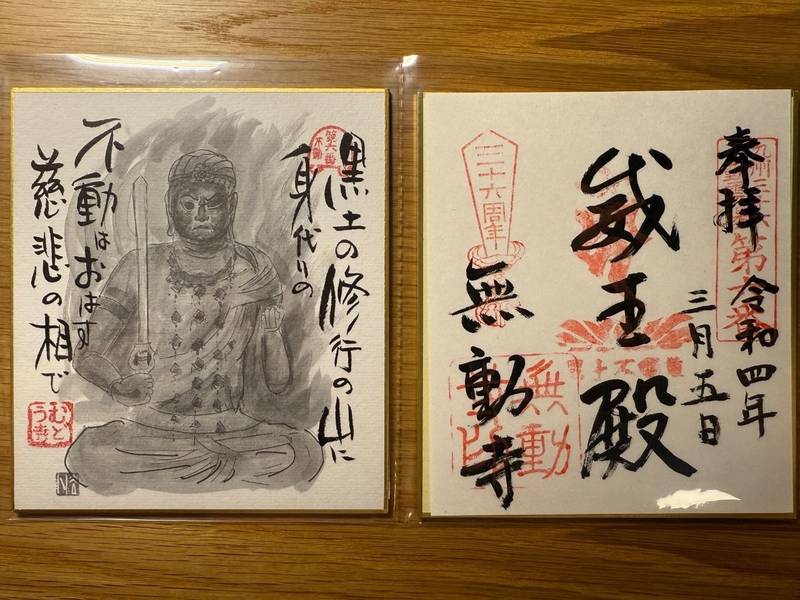 第六番
黒土の修行の山に
身代りの
不動はおはす
慈悲の相で
むどう寺
奉拝
令和四年
三月五日
威王殿
三十六周年
無動寺
無動